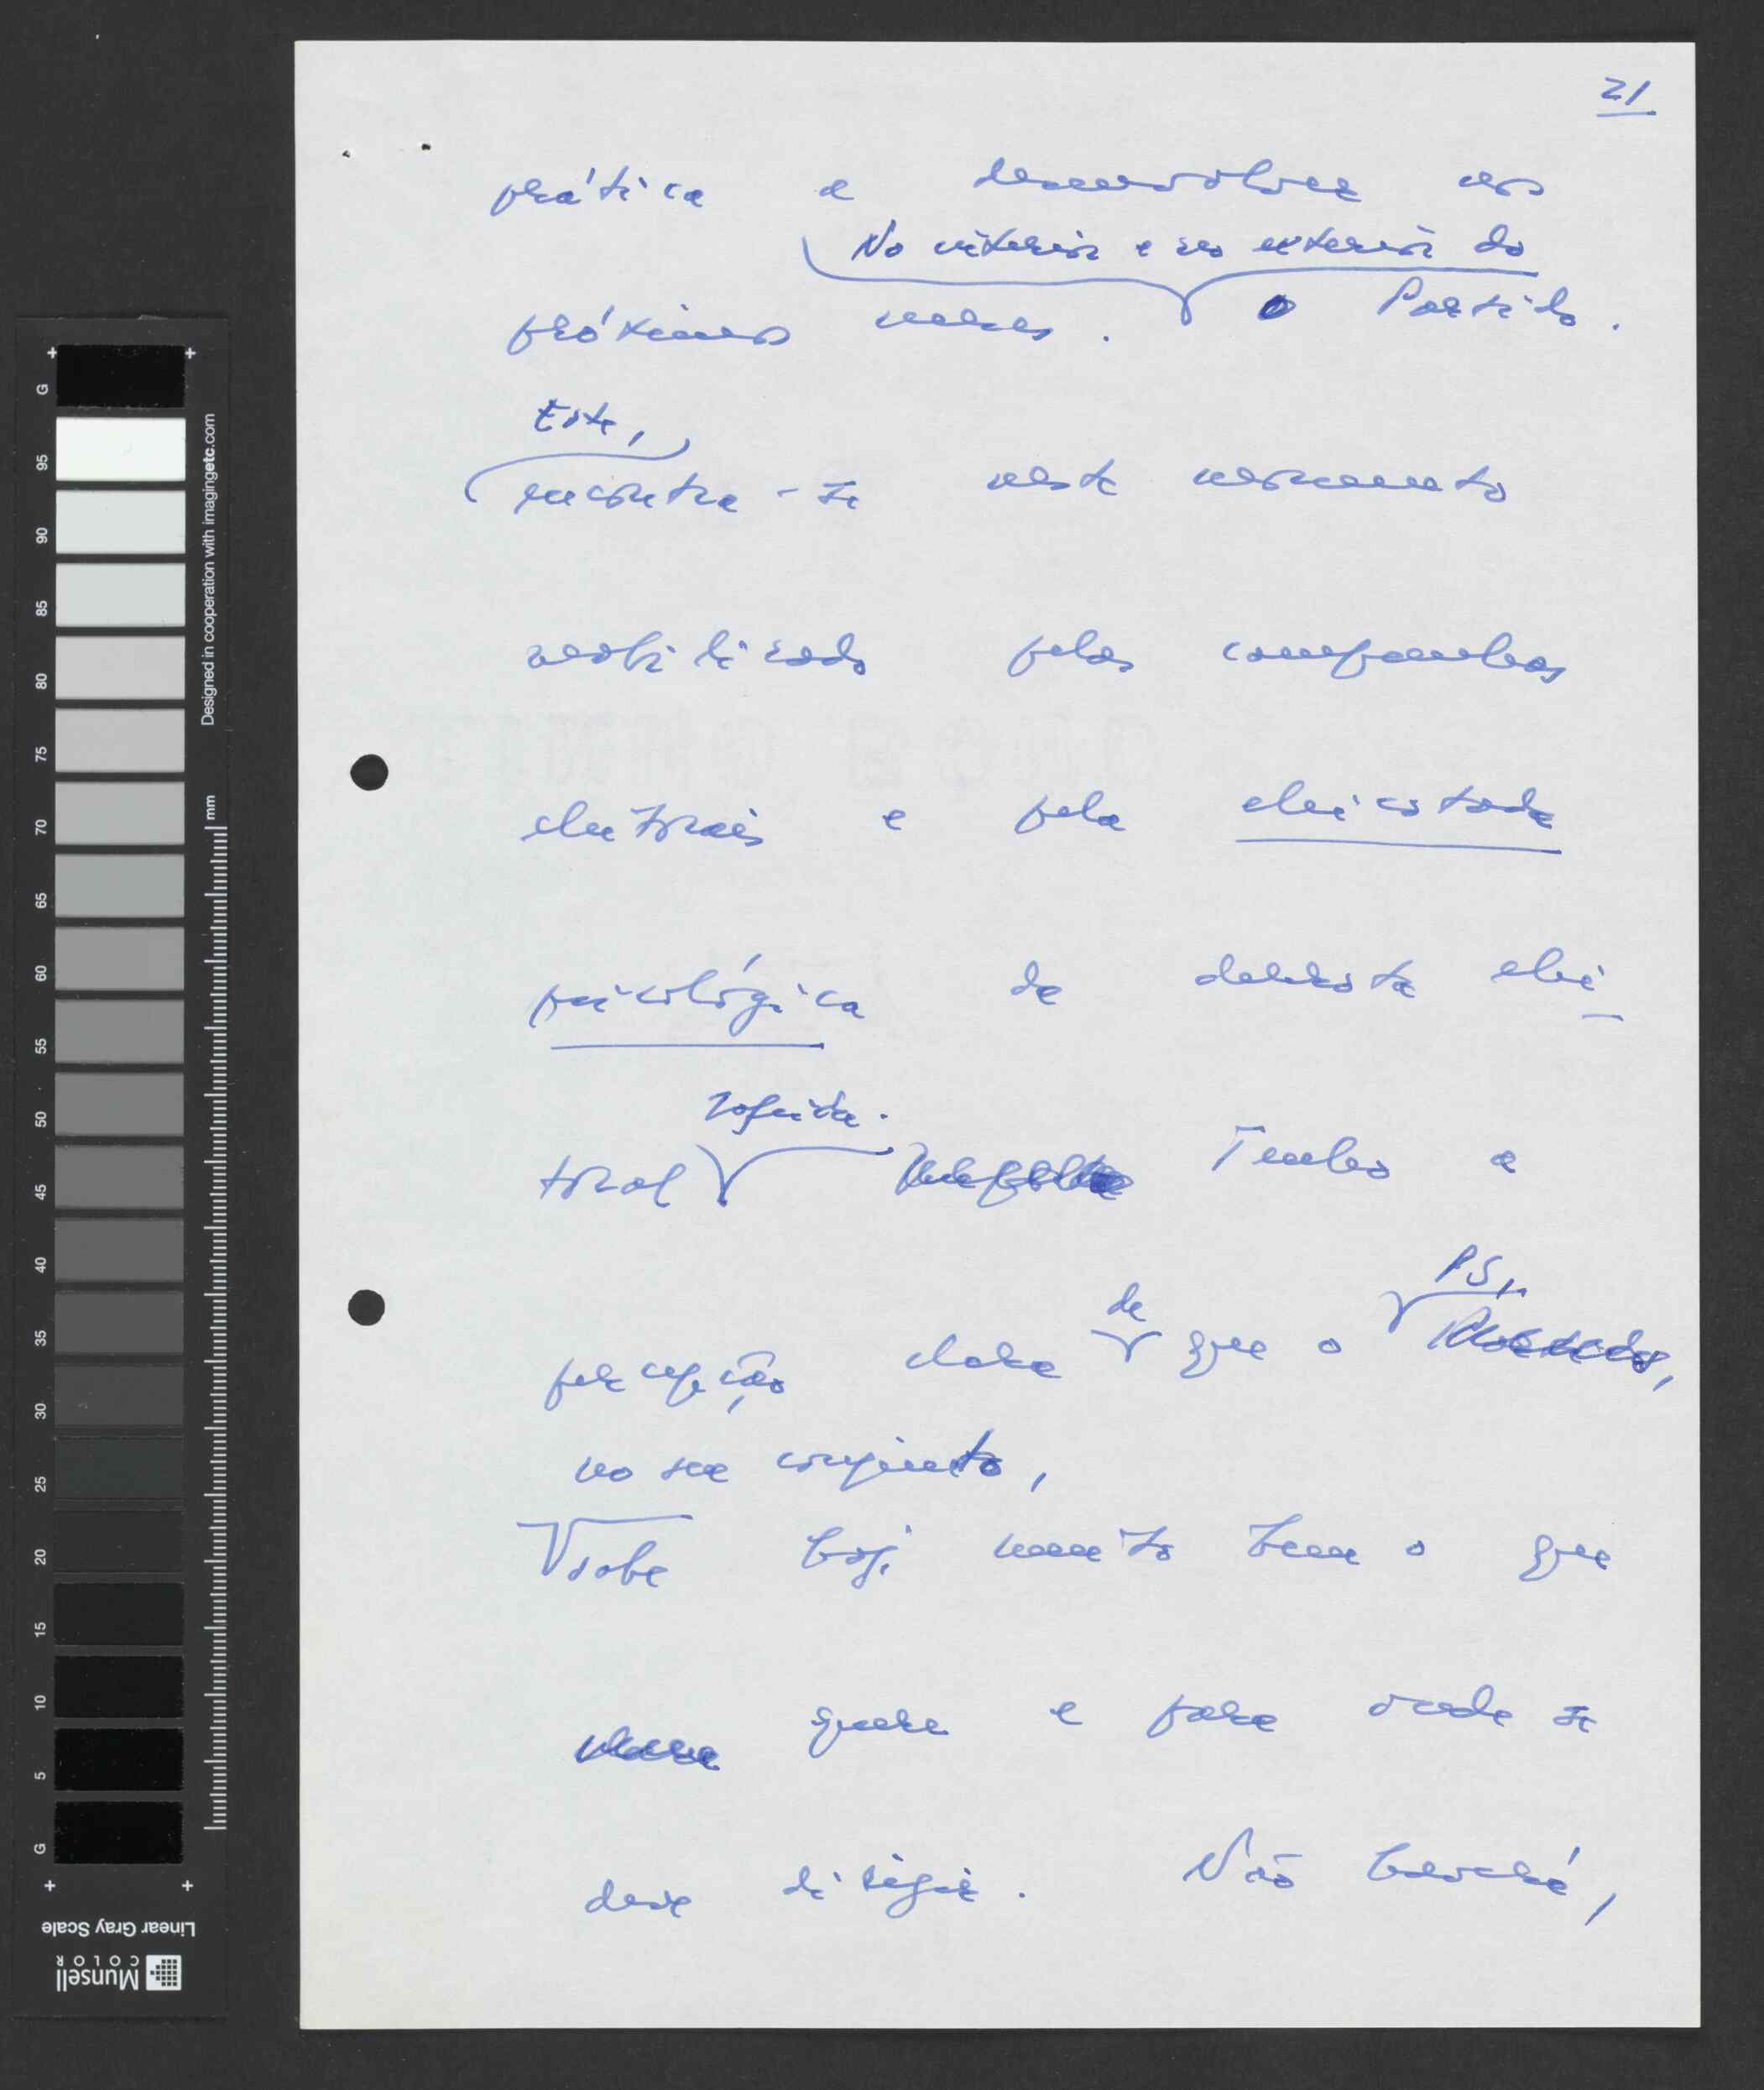 21
prática a desenvolver nos
No interior e no exterior do
próximos meses. o Partido.
Este,
encontra-se neste momento
mobilizado pelas campanhas
eleitorais e pela
psicológica da derrota elei-
sofrida.
toral Tenho a
PS,
de
percepção clara que o
no seu conjunto,
sabe hoje muito bem o que
quere e para onde se
deve dirigir. Não haverá,
G 95 90 85 80 75 70 65 60 55 50 45 40 35 30 25 20 15 10 5 G
Designed in cooperation with imagingetc.com
mm
Linear Gray Scale
Munsell
COLOR